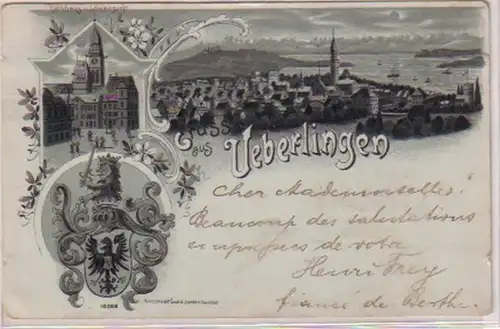 Gruss
aus
Ueberlingen
Cher Mademoiselle!
Beaucoup des salutations
empressees de votre
Henri Frey
fiancé de Berthe.